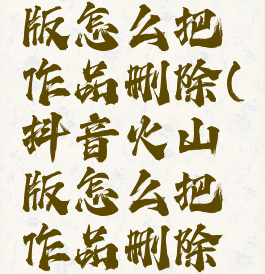 版怎么把
作品删除(
抖音火山
版怎么把
作品删除